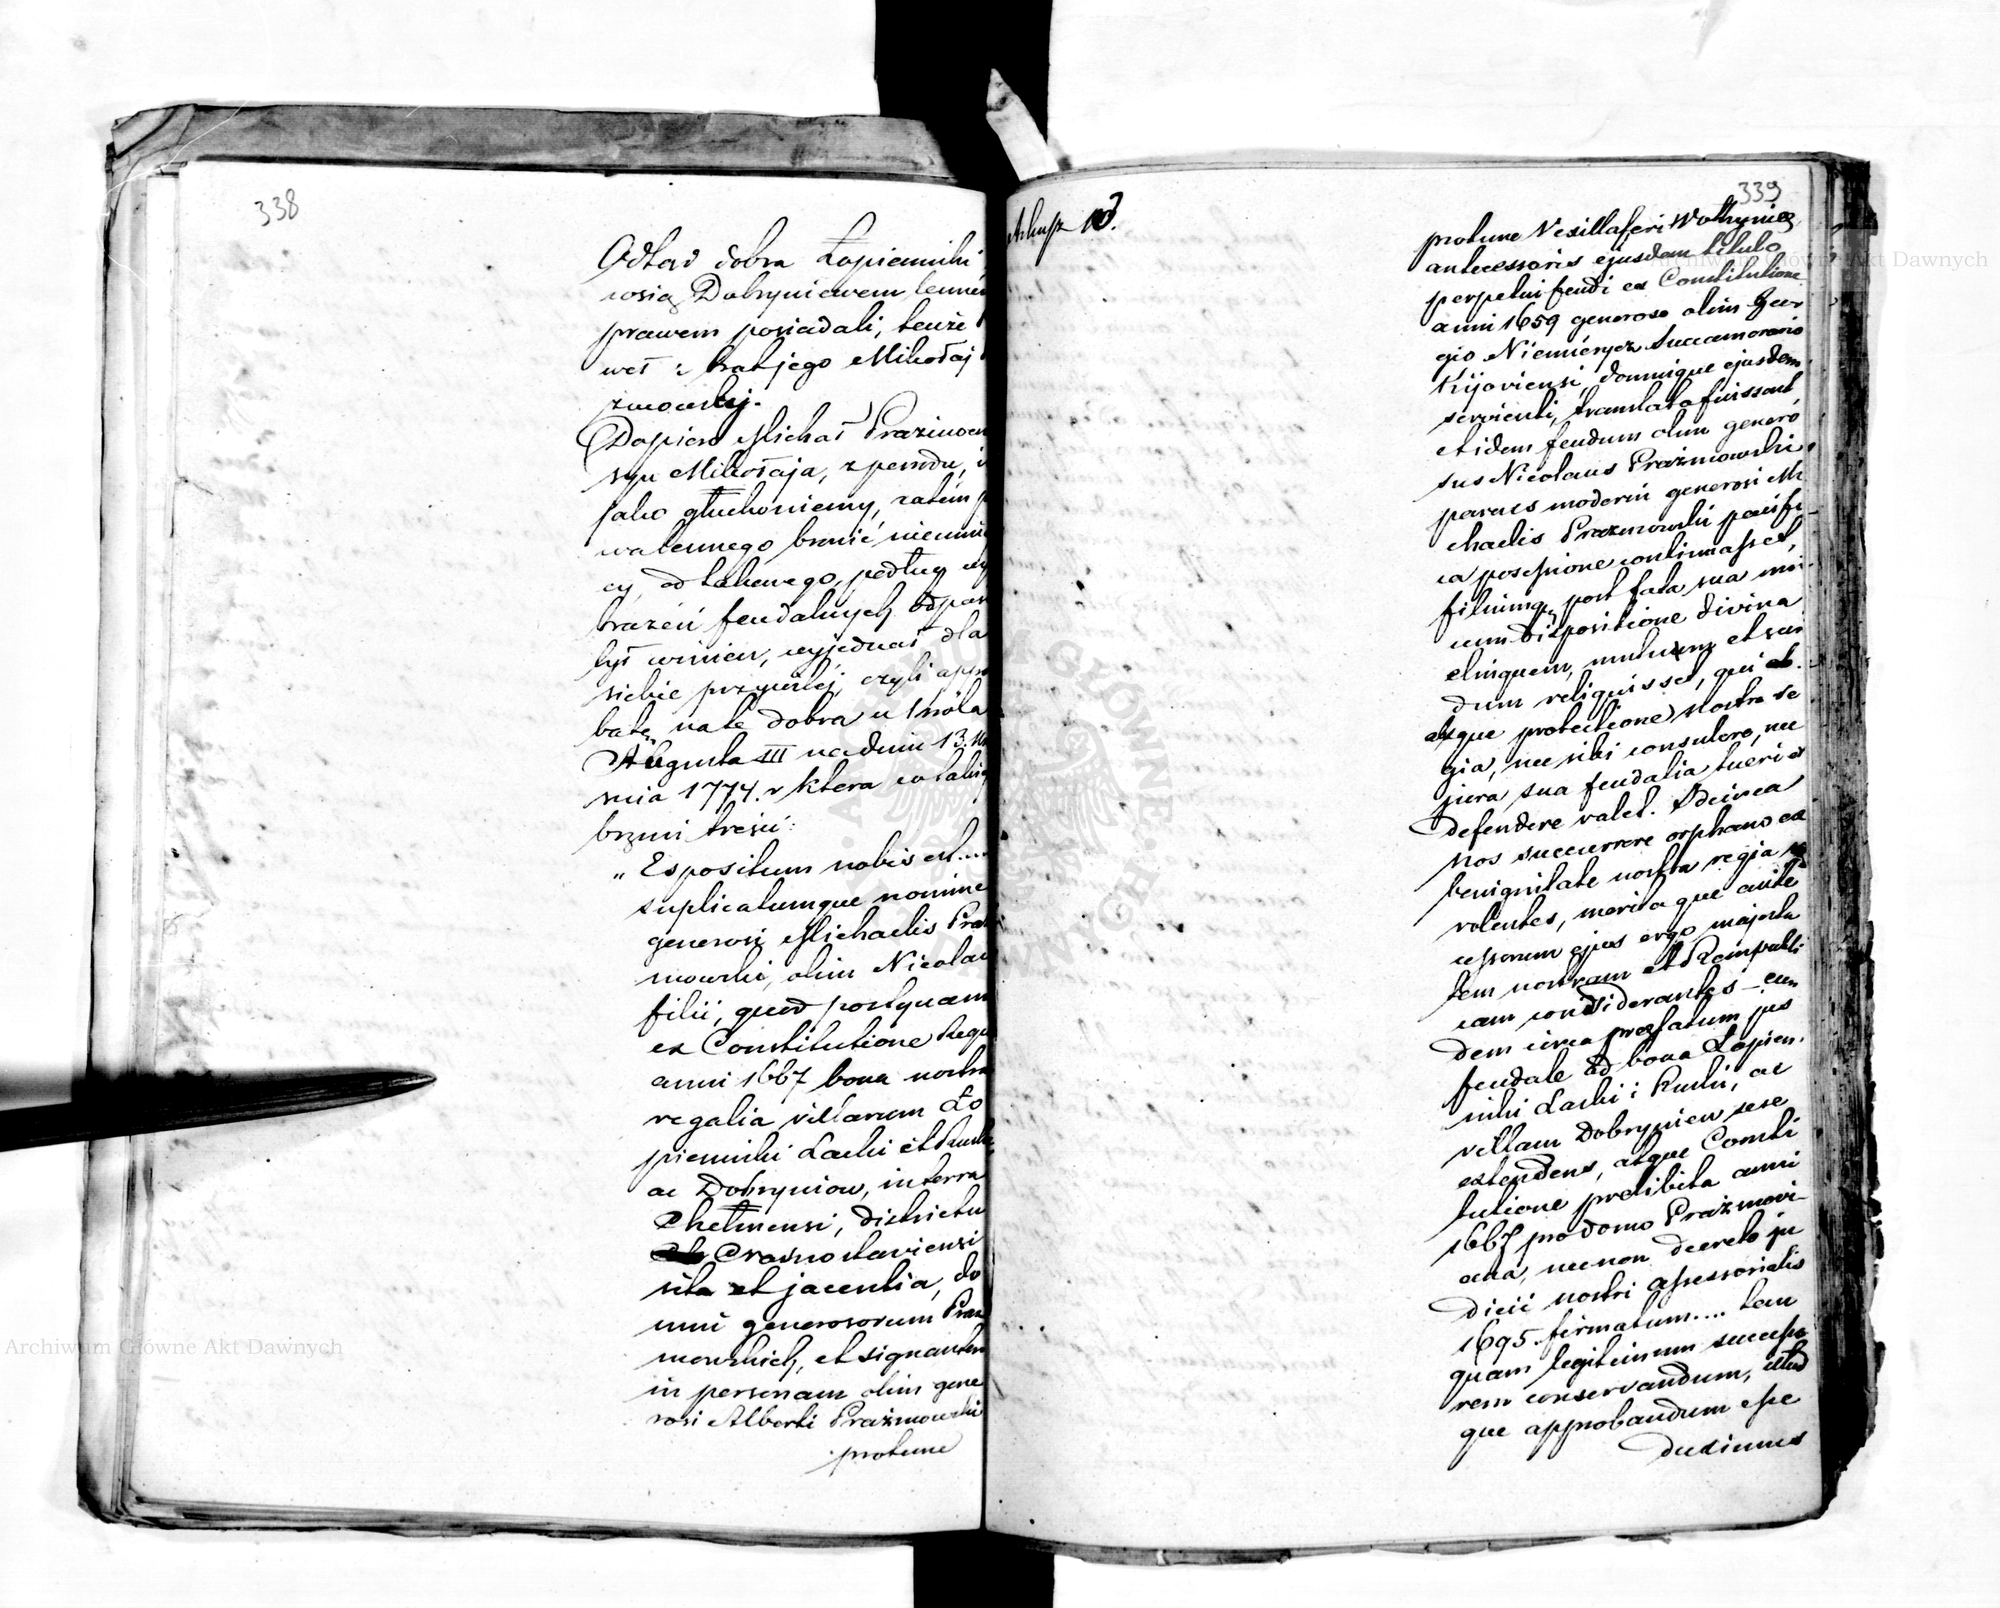 338
Odtąd dobra Łopienniki
wsią Dobryniowem lenne
prawem posiadali, tenże
weł: brat jego Mikołaj
zmowskij.
Dopiero Michał Prazmow
syn Mikołaja, z powodu, i
jako głuchoniemy, zatem p
wa lennego bronić nieumie
cy, od takowego, podług wy
brażeń feudalnych odpas
był winien, wyjednał dla
siebie przywilej, czyli appro
batę na te dobra u Króla
Augusta III na dniu 13.
nia 1774. r która w takiej
brzmi treści:
„Expositum nobis est....
suplicatumque nomine
generosi Michaelis Praz
mowski, olim Nicolai
filii, quod postquam
ex Constitutione Regn
anni 1667 bona nostra
regalia villarum Ło
pienniki Lacki et Ruski
ac Dobryniow, in terra
Chełmensi, districtu
Crasnostaviensi
sita et jacentia, do
mui generosorum Praz
mowskich, et signanter
in personam olim gene
rosi Alberti Prażmowski
protunc
Arkusz 103.
339
protunc Vexilliferi Wołhyniæ
antecessoris ejusdem titulo
perpetui feudi ex Constitutione
anni 1659 generoso olim Geor
gio Niemierycz Succamerario
Kijoviensi, domuique ejusdem
servienti, translata fuissent
et idem feudum olim genero
sus Nicolaus Prażmowski,
parens moderni generosi Mi
chaelis Prazmowski pacifi
ca possessione continuasset,
filiumq post fata sua mi
cum dispositione divina
elinguem, mutum et sur
dum reliquisset, qui ab
absque protectione nostra re
gia, nec sibi consulere, nec
jura sua feudalia tueri et
defendere valet. Ideirca
nos succurrere orphano ex
benignitate nostra regia
volentes, merita que ante
cessorum ejus ergo majesta
tem nostram et Rempubli
cam considerantes – eun
dem circa præfatum jus
feudale ad bona Łopien.
niki Lacki i Ruski, ac
villam Dobryniow sese
extendens, atque Consti
tutione prælibita anni
1667 pro domo Prażmovi-
ana, necnon decreto ju
dicii nostri assessorialis
1695. firmatum.... tan
quam legitimum successo
rem conservandum, illud
que approbandum esse
duximus
Archiwum Główne Akt Dawnych
Archiwum Główne Akt Dawnych